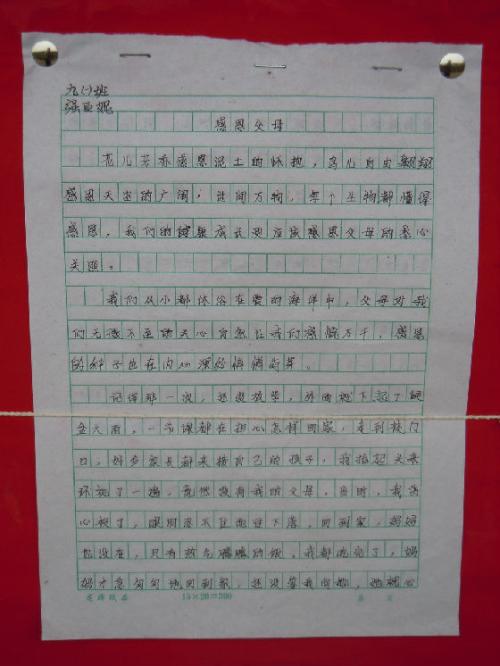 九(一)班
感恩父母
花儿芬香感恩泥土的怀抱，鸟儿自由翱翔
感恩天空的广阔；世间万物，每个生物都懂得
感恩，我们的健康成长更应该感恩父母的悉心
关照。
我们从小都体浴在爱的海洋中，父母对我
们无微不至的关心自然让我们感慨万千，感恩
的种子也在内心深处悄悄萌芽。
记得那一次，我要放学，外面就下起了倾
盆大雨，一节课都在担心怎样回家，走到校门
口，好多家长都来接自己的孩子，我抬起头来
环视了一遍，竟然没有我的父母，当时，我伤
心极了，眼泪忍不住地往下落，回到家，妈妈
也没在，只有热气腾腾的饭，我都吃完了，妈
妈才急匆匆地回到家，还没等我问她，她就心
15×20=300